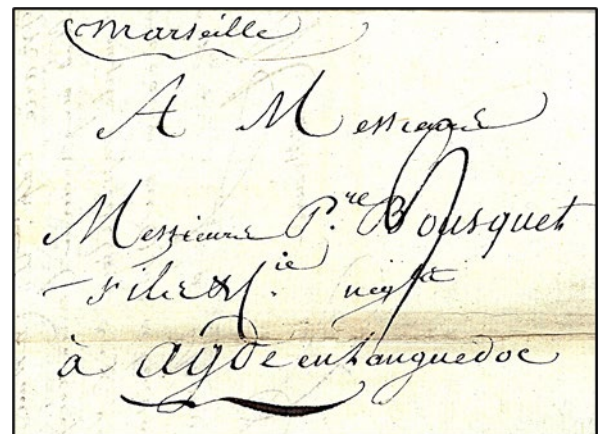 Marseille
A Messieurs
Messieurs P.re Bousquet
Fils & C.ie negts
à Agde en Languedoc